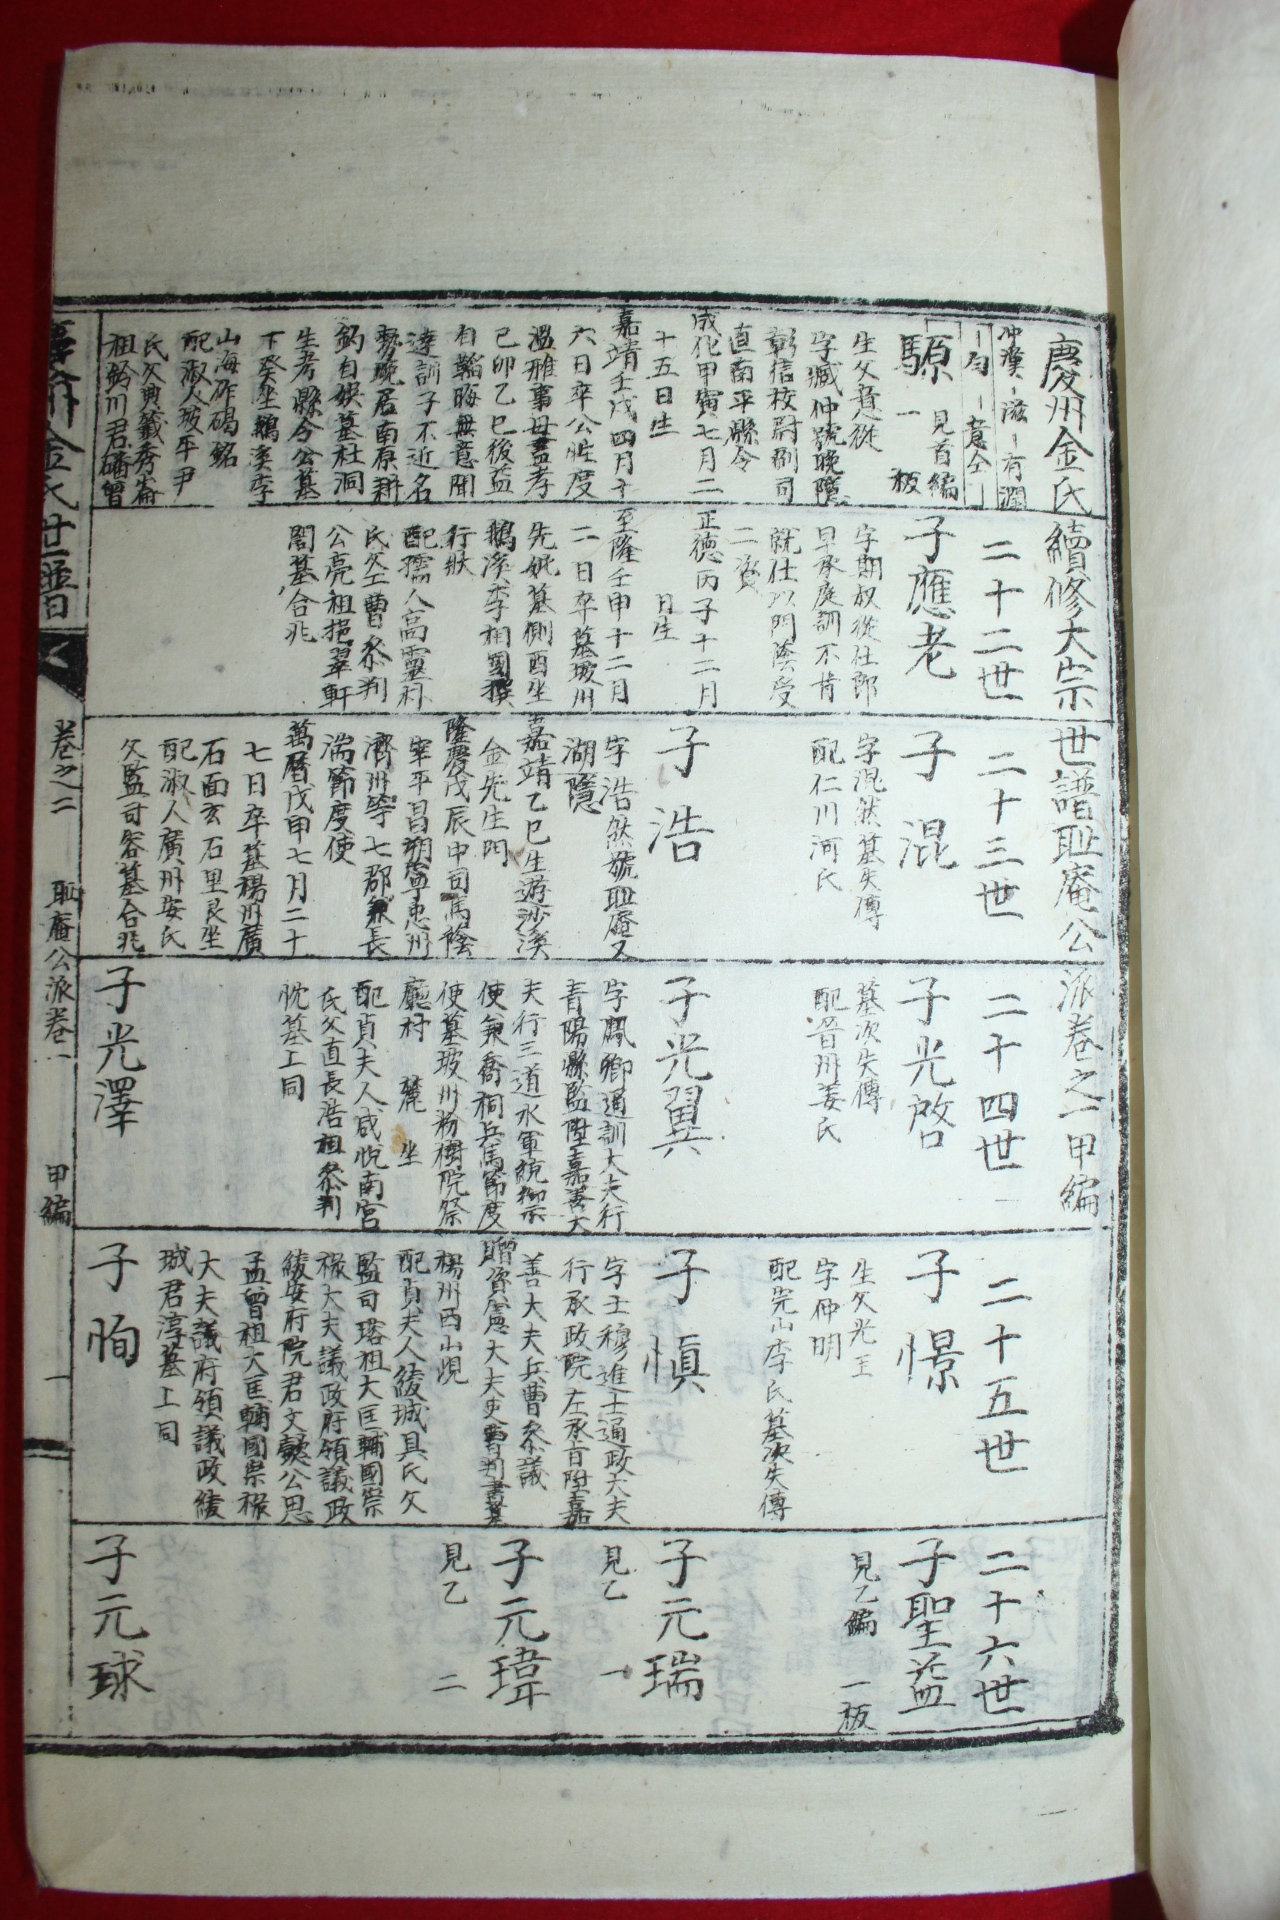 慶州金氏續修大宗世譜耻庵公派卷之一甲編
冲漢-滋-有潤
-勻-意仝
騵
見首編
一板
生父意從
字臧仲號晚隱
彰信校尉副司
直南平縣令
成化甲寅七月二
十五日生
嘉靖壬戌四月十
六日卒公性度
溫雅事母盡孝
己卯乙巳後益
自韜晦無意聞
達訓子不近名
勢晚居南原耕
釣自娛墓杜洞
生考縣令公墓
下癸坐鵝溪李
山海作碣銘
配淑人坡平尹
氏父典籤秀崙
祖鈴川君磻曾
二十二世
子應老
字期叔從仕郎
早承庭訓不肯
就仕以門蔭受
一資
正德丙子十二月
日生
至隆壬申十二月
一日卒墓坡州
先妣墓側酉坐
鵝溪李相國撰
行狀
配孺人高靈朴
氏父工曹參判
公亮祖挹翠軒
誾墓合兆
二十三世
子混
字混然墓失傳
配仁川河氏
子浩
字浩然號耻庵又
湖隱
嘉靖乙巳生遊沙溪
金先生門
隆慶戊辰中司馬蔭
宰平昌朔寧忠州
濟州等七郡兼長
湍節度使
萬曆戊申七月二十
七日卒墓楊州廣
石面玄石里艮坐
配淑人廣州安氏
父監司容墓合兆
二十四世
子光啓
墓次失傳
配晉州姜氏
子光翼
字鳳卿通訓大夫行
青陽縣監陞嘉善大
夫行三道水軍統禦
使兼喬桐兵馬節度
使墓坡州粉樹院祭
廳村 麓 坐
配貞夫人咸悅南宮
氏父直長浩祖參判
忱墓上同
子光澤
二十五世
子憬
生父光玉
字仲明
配完山李氏墓次失傳
子愼
字士穆進士通政大夫
行承政院左承旨陞嘉
善大夫兵曹參議
贈資憲大夫吏曹判書墓
楊州西山峴
配貞夫人綾城具氏父
監司瑢祖大匡輔國崇
祿大夫議政府領議政
綾安府院君文懿公思
孟曾祖大匡輔國崇祿
大夫議府領議政綾
城君淳墓上同
子恂
二十六世
子聖益
見乙編
一板
子元瑞
見乙
一
子元瑋
見乙
二
子元球
慶州金氏世譜
卷之二
耻庵公派卷一
甲編
一